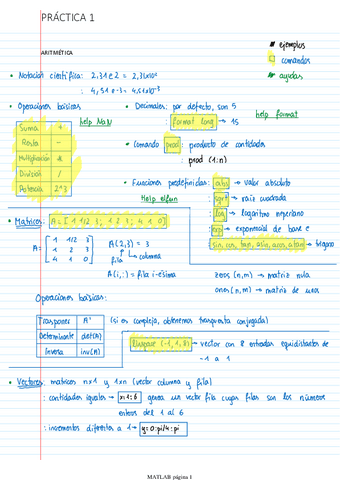 PRÁCTICA 1
ARITMÉTICA
ejemplos
comandos
ayudas
• Notación científica: 2,31e2 = 2,31x10²
: 4,51e-3 = 4,51x10⁻³
• Operaciones básicas
help NaN
Suma +
Resta -
Multiplicación *
División /
Potencia 2^3
• Decimales: por defecto, son 5
: format long → 15
help format
• Comando prod: producto de cantidades
: prod (1:n)
• Funciones predefinidas: abs → valor absoluto
Help elfun
: sqrt → raíz cuadrada
: log → logaritmo neperiano
: exp → exponencial de base e
: sin, cos, tan, asin, acos, atan → trigono
• Matrices: A = [1 1/2 3; 1 2 3; 4 1 0]
A = [1 1/2 3
1 2 3
4 1 0]
A(2,3) = 3
fila columna
A(i,:) = fila i-ésima
zeros(n,m) → matriz nula
ones(n,m) → matriz de unos
Operaciones básicas:
Trasponer A'
Determinante det(A)
Inversa inv(A)
(si es compleja, obtenemos traspuesta conjugada)
linspace (-1,1,8) → vector con 8 entradas equidistantes de
-1 a 1
• Vectores: matrices n×1 y 1×n (vector columna y fila)
: cantidades iguales → x=1:6 genera un vector fila cuyas filas son los números
enteros del 1 al 6
: incrementos diferentes a 1 → y=0:pi/4:pi
MATLAB página 1